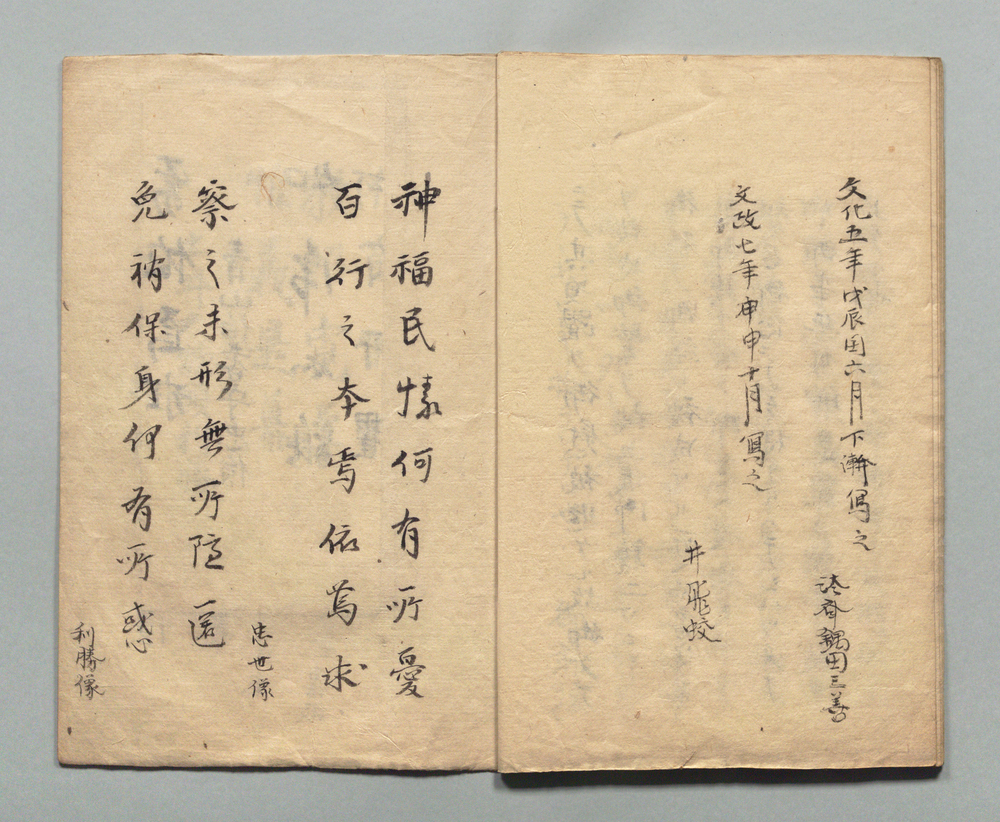 文化五年戊辰閏六月下澣写之
斎鶴田三善
文政七年甲申十月写之
井飛蛟
神福民懐何有所憂
百行之本焉依焉求
忠世像
察之未形無所隠匿
免禍保身何有所惑
利勝像